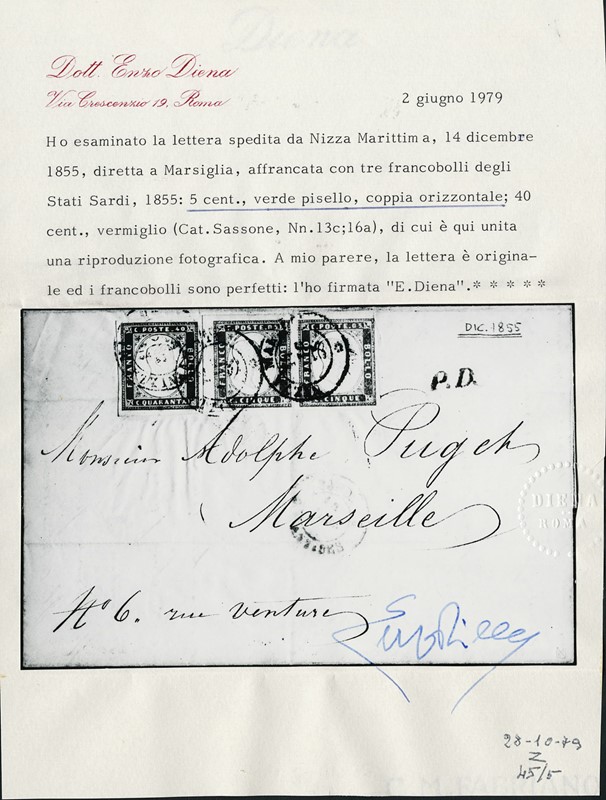 Dott. Enzo Diena
Via Crescenzio 19. Roma
2 giugno 1979
Ho esaminato la lettera spedita da Nizza Marittima, 14 dicembre
1855, diretta a Marsiglia, affrancata con tre francobolli degli
Stati Sardi, 1855: 5 cent., verde pisello, coppia orizzontale; 40
cent., vermiglio (Cat. Sassone, Nn.13c;16a), di cui è qui unita
una riproduzione fotografica. A mio parere, la lettera è origina-
le ed i francobolli sono perfetti: l'ho firmata "E.Diena".* * * * *
C. POSTE 40
FRANCO
BOLLO
C. QUARANTA
C. POSTE 5
FRANCO
BOLLO
C. CINQUE
C. POSTE 5
BOLLO
CINQUE
DIC. 1855
P.D.
Monsieur Adolphe Puget
Marseille
DIENA
ROMA
No 6. rue venture
28-10-79
Z
45/5